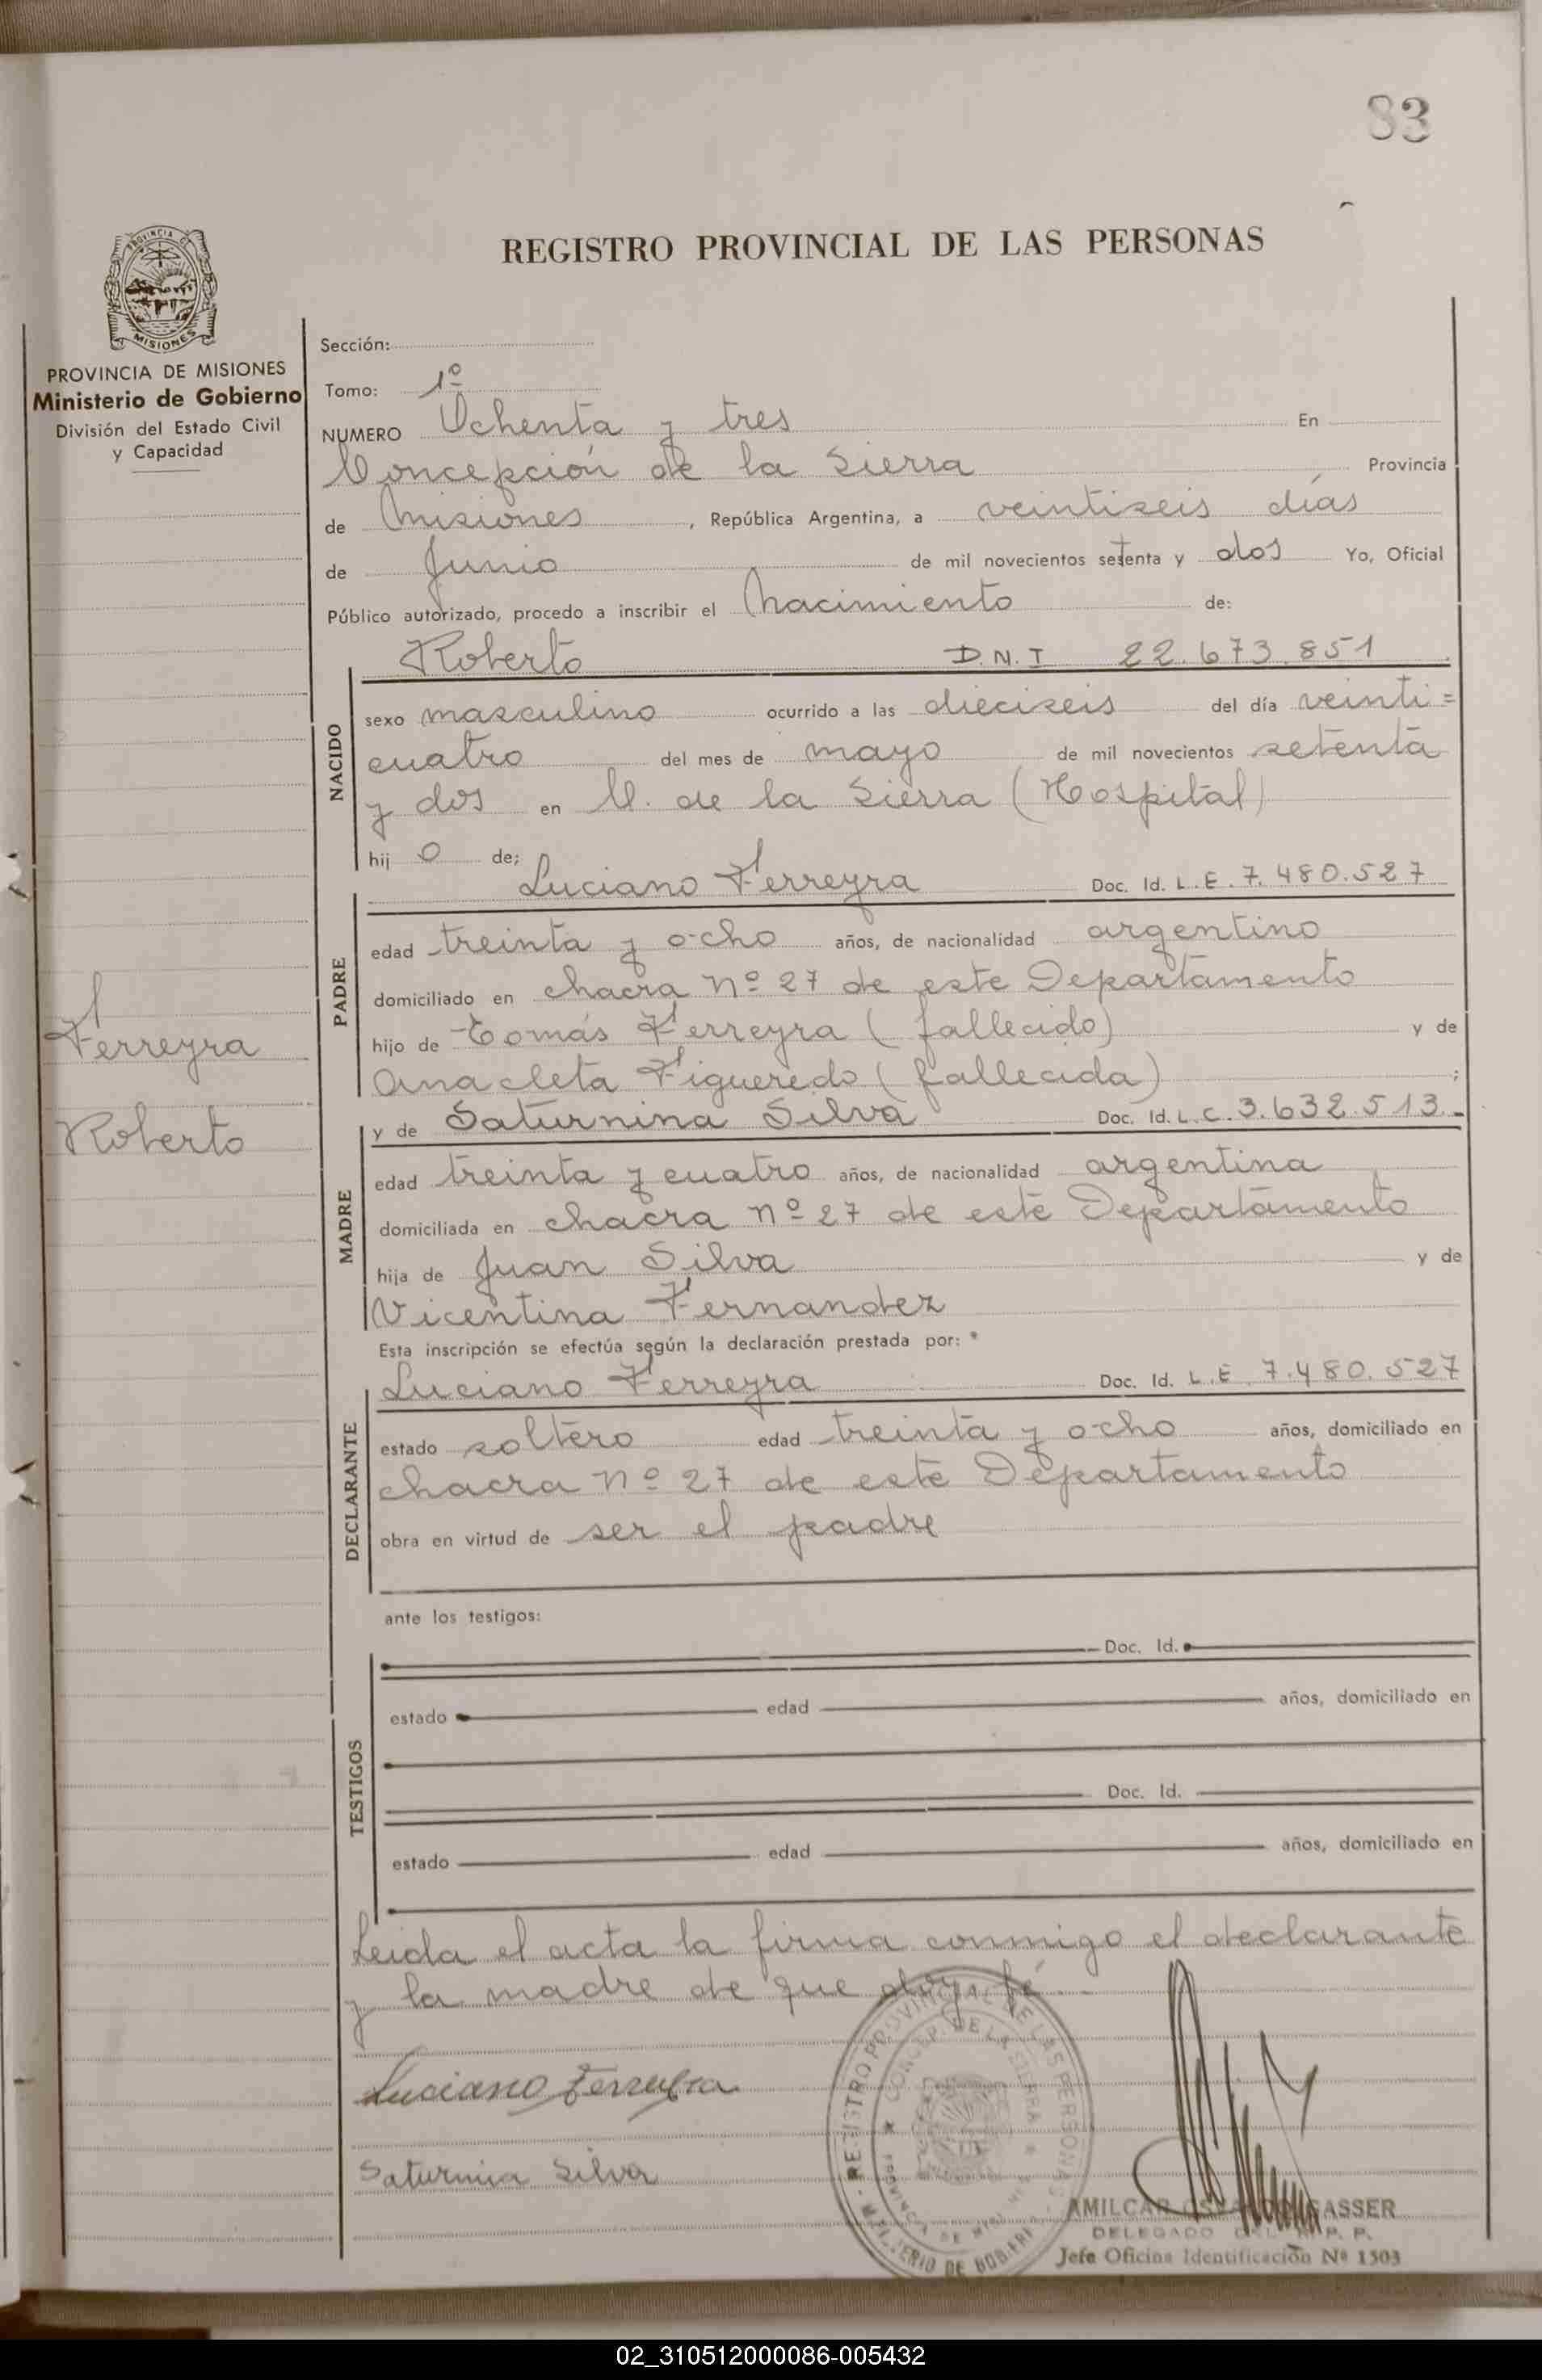 83
REGISTRO PROVINCIAL DE LAS PERSONAS
PROVINCIA DE MISIONES
Ministerio de Gobierno
División del Estado Civil
y Capacidad
Sección:
Tomo: 1º
NUMERO Ochenta y tres En
Concepción de la Sierra Provincia
de Misiones, República Argentina, a veintiseis días
de Junio de mil novecientos setenta y dos Yo, Oficial
Público autorizado, procedo a inscribir el Nacimiento de:
Roberto D.N.I 22.673.851
NACIDO
sexo masculino ocurrido a las dieciseis del día veinti=
cuatro del mes de mayo de mil novecientos setenta
y dos en C. de la Sierra (Hospital)
hij o de;
Luciano Ferreyra Doc. Id. L.E. 7.480.527
PADRE
edad treinta y ocho años, de nacionalidad argentino
domiciliado en chacra nº 27 de este Departamento
hijo de Tomás Ferreyra (fallecido) y de
Anacleta Figueredo (fallecida) ;
Ferreyra
Roberto
y de Saturnina Silva Doc. Id. L.C. 3.632.513.-
MADRE
edad treinta y cuatro años, de nacionalidad argentina
domiciliada en chacra nº 27 de este Departamento
hija de Juan Silva y de
Vicentina Fernandez
Esta inscripción se efectúa según la declaración prestada por: *
Luciano Ferreyra Doc. Id. L.E. 7.480.527
DECLARANTE
estado soltero edad treinta y ocho años, domiciliado en
chacra nº 27 de este Departamento
obra en virtud de ser el padre
ante los testigos:
Doc. Id.
TESTIGOS
estado edad años, domiciliado en
Doc. Id.
estado edad años, domiciliado en
Leida el acta la firma conmigo el declarante
y la madre de que doy fé.
Luciano Ferreyra
Saturnina Silva
REGISTRO PROVINCIAL DE LAS PERSONAS - MINISTERIO DE GOBIERNO
CONCEP. DE LA SIERRA
PROVINCIA DE MISIONES
AMILCAR GASSER
DELEGADO DEL R. P. P.
Jefe Oficina Identificación Nº 1503
02_310512000086-005432